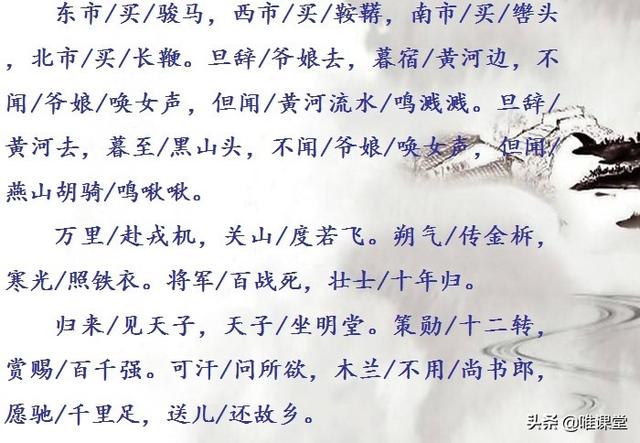 东市/买/骏马，西市/买/鞍鞯，南市/买/辔头
，北市/买/长鞭。旦辞/爷娘去，暮宿/黄河边，不
闻/爷娘/唤女声，但闻/黄河流水/鸣溅溅。旦辞/
黄河去，暮至/黑山头，不闻/爷娘/唤女声，但闻/
燕山胡骑/鸣啾啾。
万里/赴戎机，关山/度若飞。朔气/传金柝，
寒光/照铁衣。将军/百战死，壮士/十年归。
归来/见天子，天子/坐明堂。策勋/十二转，
赏赐/百千强。可汗/问所欲，木兰/不用/尚书郎，
愿驰/千里足，送儿/还故乡。
头条 @唯课堂